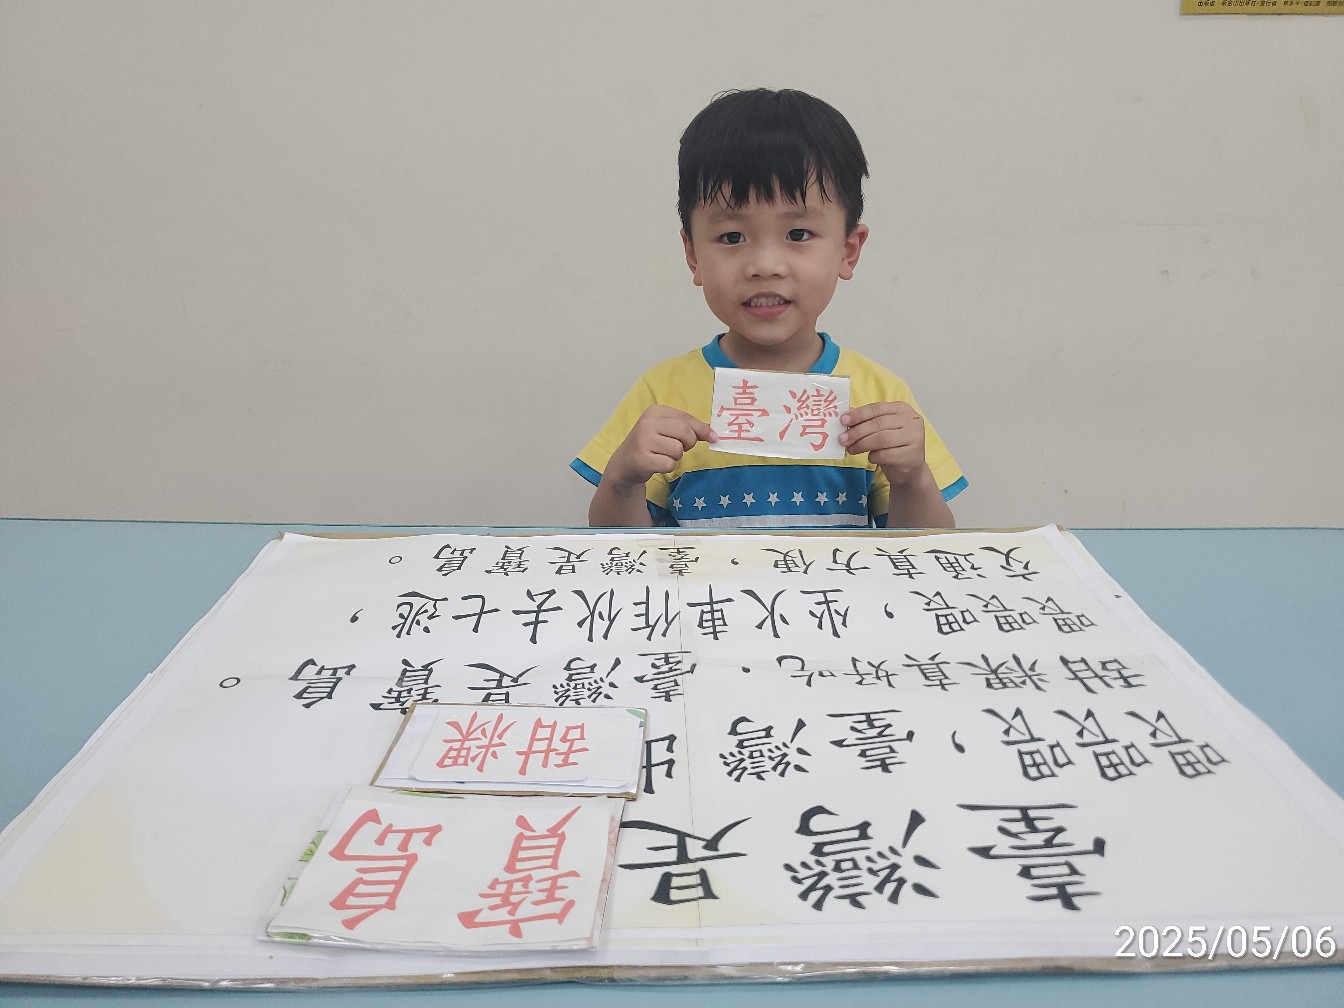 臺灣
臺灣是
寶島
喂喂喂，臺灣出
甜粿
甜粿真好吃，臺灣是寶島。
喂喂喂，坐火車作伙去七逃，
交通真方便，臺灣是寶島。
2025/05/06